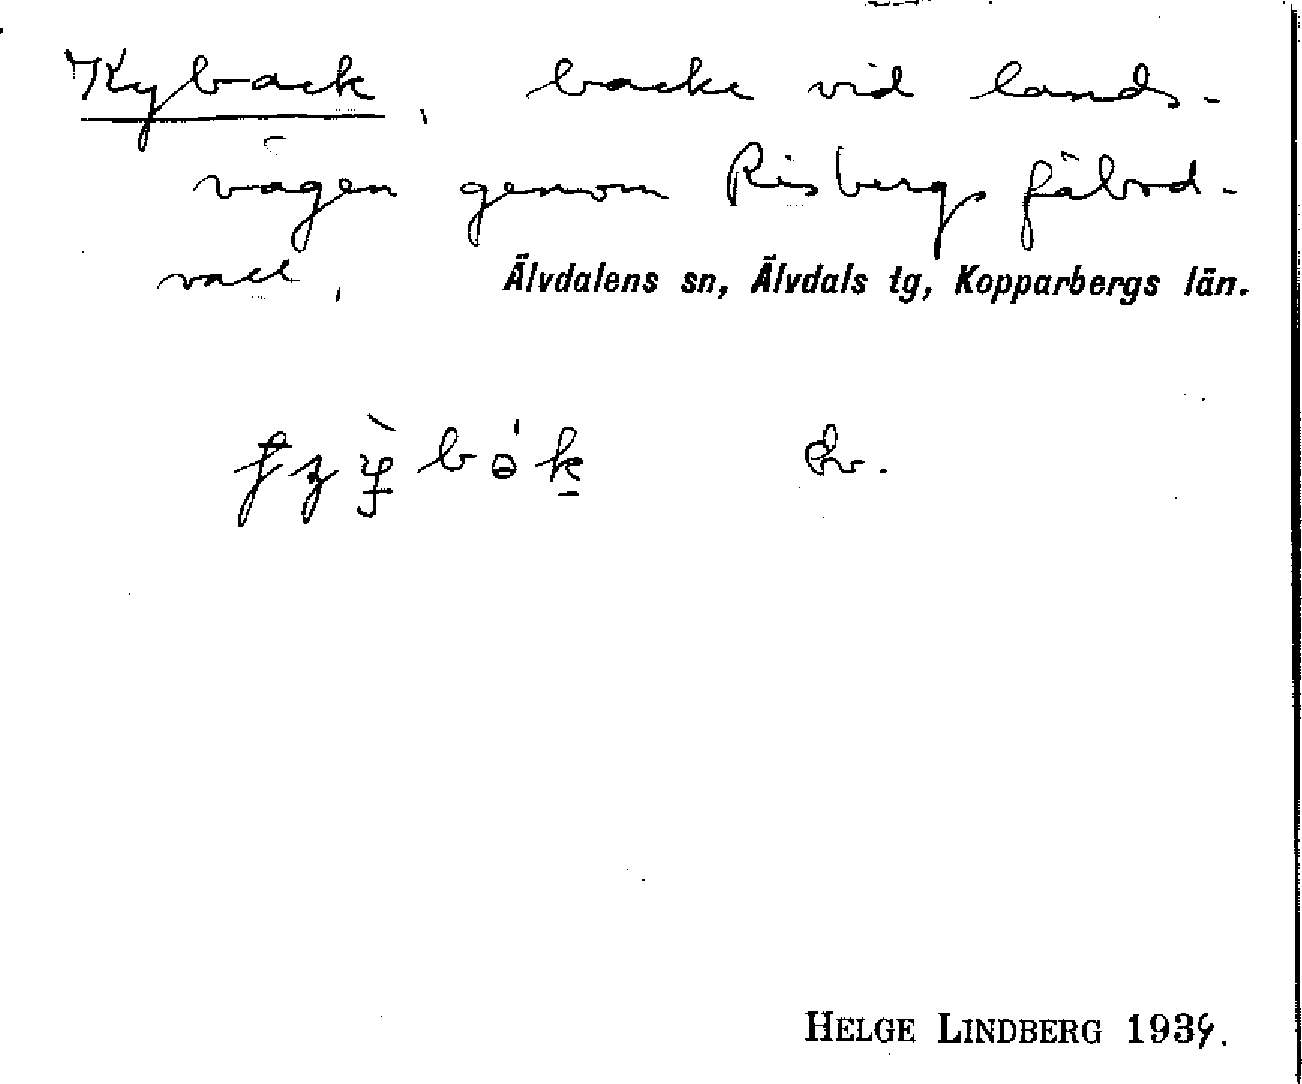 Kyback, backe vid lands-
vägen genom Risbergs fäbod-
vall, Älvdalens sn, Älvdals tg, Kopparbergs län.
HELGE LINDBERG